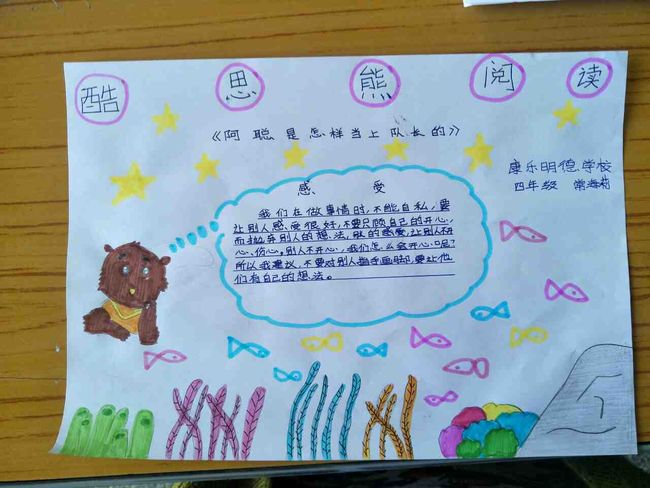 酷思熊阅读
《阿聪是怎样当上队长的》
康乐明德学校
四年级 常海莉
感受
我们在做事情时,不能自私,要
让别人感受很好,不要只顾自己的开心,
而抛弃别人的想法,的感受,让别人不开
心,伤心。别人不开心,我们怎么会开心呢?
所以我建议,不要对别人指手画脚,要让他
们有自己的想法。